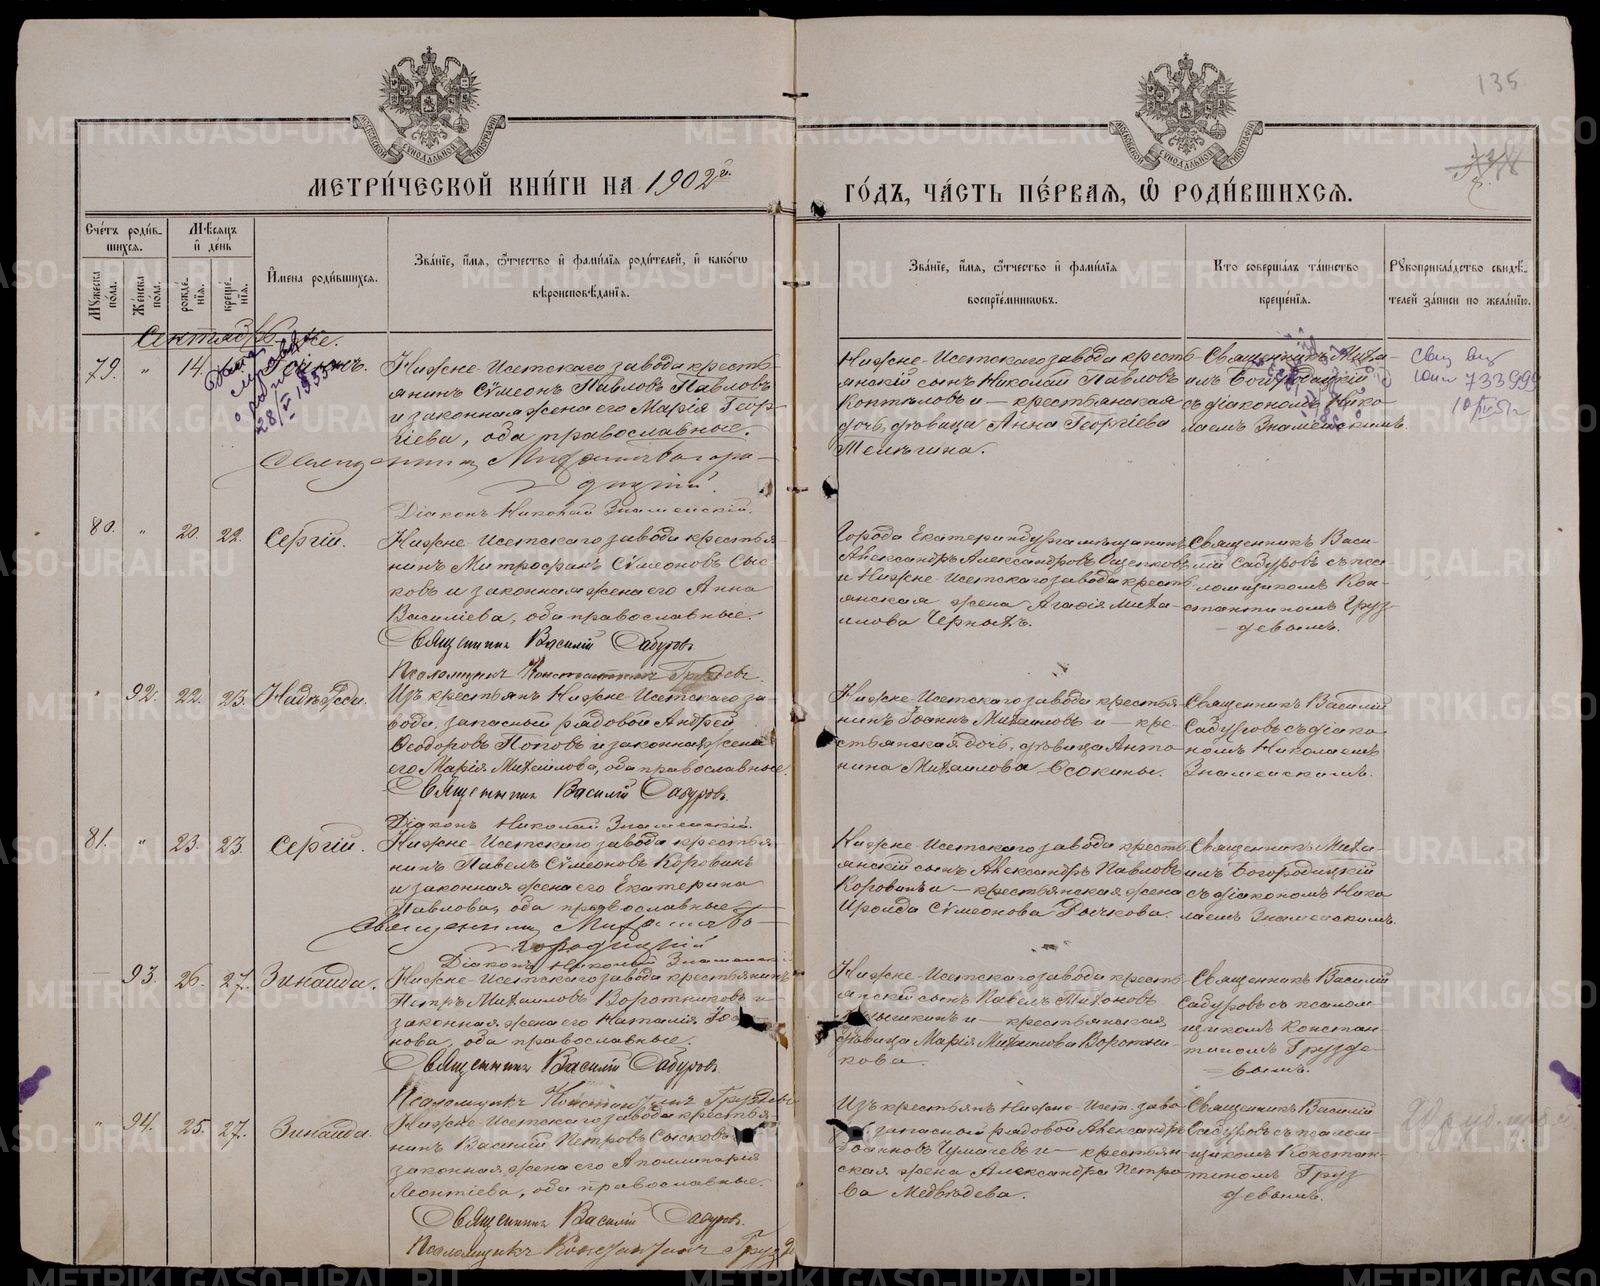 135
МЕТРИ́ЧЕСКОЙ КНИ́ГИ НА 1902й.
ГО́ДЪ, ЧА́СТЬ ПЕ́РВАЯ, Ѡ РОДИ́ВШИХСЯ.
Сче́тъ роди́в-
шихся.
Мѣ́сяцъ
и҆ де́нь
Му́жеска
по́ла.
Же́нска
по́ла.
рожде́-
нїя.
креще́-
нїя.
И҆мена роди́вшихся.
Зва́нїе, и҆́мя, ѻ҆́тчество и҆ фами́лїя роди́телей, и҆ како́гѡ
вѣроисповѣ́данїя.
Зва́нїе, и҆́мя, ѻ҆́тчество и҆ фами́лїя
воспрїе́мниковъ.
Кто соверша́лъ та́инство
креще́нїя.
Рукоприкла́дство свидѣ́-
телей за́писи по жела́нїю.
Сентябрь.
79. " 14.
Нижне-Исетскаго завода кресть-
янинъ Сѵмеонъ Павловъ Павловъ
и законная жена его Марія Геор-
гіева, оба православные.
Священникъ Михаилъ Богоро-
дицкій.
Діаконъ Николай Знаменскій.
28/V 1933
Нижне-Исетскаго завода кресть-
янскій сынъ Николай Павловъ
и – крестьянская
дочь, дѣвица Анна Георгіева
Священникъ Миха-
илъ Богородицкій
съ діакономъ Нико-
лаемъ Знаменскимъ.
733999
80. " 20. 22. Сергій.
Нижне-Исетскаго завода крестья-
нинъ Митрофанъ Сѵмеоновъ Сыс-
ковъ и законная жена его Анна
Василіева, оба православные.
Священникъ Василій Сабуровъ
Псаломщикъ Константинъ Груздевъ.
Города Екатеринбурга мѣщанинъ
Александръ Александровъ
и Нижне-Исетскаго завода кресть-
янская жена Агафія Миха-
илова Черныхъ.
Священникъ Васи-
лій Сабуровъ съ пса-
ломщикомъ Кон-
стантиномъ Груз-
девымъ.
" 92. 22. 23. Надежда.
Изъ крестьянъ Нижне-Исетскаго за
вода, запасный рядовой Андрей
Ѳеодоровъ Поповъ и законная жена
его Марія Михаилова, оба православные.
Священникъ Василій Сабуровъ.
Діаконъ Николай Знаменскій.
Нижне-Исетскаго завода крестья-
нинъ Іоаннъ Михаиловъ и – кре-
стьянская дочь, дѣвица Анто-
нина Михаилова Осокины.
Священникъ Василій
Сабуровъ съ діако-
номъ Николаемъ
Знаменскимъ.
81. " 23. 23. Сергій.
Нижне-Исетскаго завода крестья-
нинъ Павелъ Сѵмеоновъ Коровинъ
и законная жена его Екатерина
Павлова, оба православные.
Священникъ Михаилъ Бо-
городицкій
Діаконъ Николай Знаменскій
Нижне-Исетскаго завода кресть-
янскій сынъ Александръ Павловъ
Коровинъ и – крестьянская жена
Ироида Сѵмеонова Рычкова.
Священникъ Миха-
илъ Богородицкій
съ діакономъ Нико
лаемъ Знаменскимъ.
93. 26. 27. Зинаида.
Нижне-Исетскаго завода крестьянинъ
Петръ Михаиловъ Воротниковъ и
законная жена его Наталія Іоан-
нова, оба православные.
Священникъ Василій Сабуровъ
Псаломщикъ Константинъ Груздевъ
Нижне-Исетскаго завода кресть-
янскій сынъ Павелъ
и – крестьянская
дѣвица Марія Михаилова Воротни-
кова.
Священникъ Василій
Сабуровъ съ псалом-
щикомъ Констан-
тиномъ Груздe-
вымъ.
" 94. 25. 27. Зинаида.
Нижне-Исетскаго завода крестья-
нинъ Василій Петровъ Сысковъ
законная жена его Аполлинарія
Леонтіева, оба православные.
Священникъ Василій Сабуровъ.
Псаломщикъ Константинъ Груздевъ
Изъ крестьянъ Нижне-Исет. заво-
да запасный рядовой Александръ
Іоанновъ Чумачевъ и – крестьян-
ская жена Александра Петро-
ва Медвѣдева.
Священникъ Василій
Сабуровъ съ псалом-
щикомъ Констан-
тиномъ Груз
девымъ.
METRIKI.GASO-URAL.RU